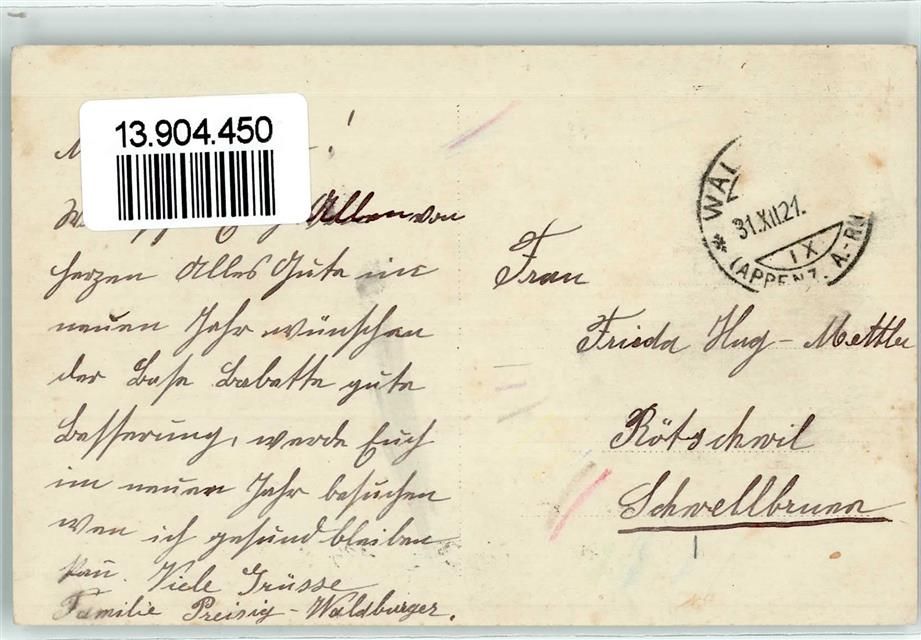 13.904.450
!
Allen von
herzen Alles Gute im
neuen Jahr wünschen
der Base Babette gute
Besserung, werde Euch
im neuen Jahr besuchen
wen ich gesund bleiben
kan. Viele Grüsse
Familie Preisig-Waldburger.
WAL
31.XII.21.
IX
* (APPENZ. A.-RH
Frau
Frieda Hug-Mettler
Rötschwil
Schwellbrunn